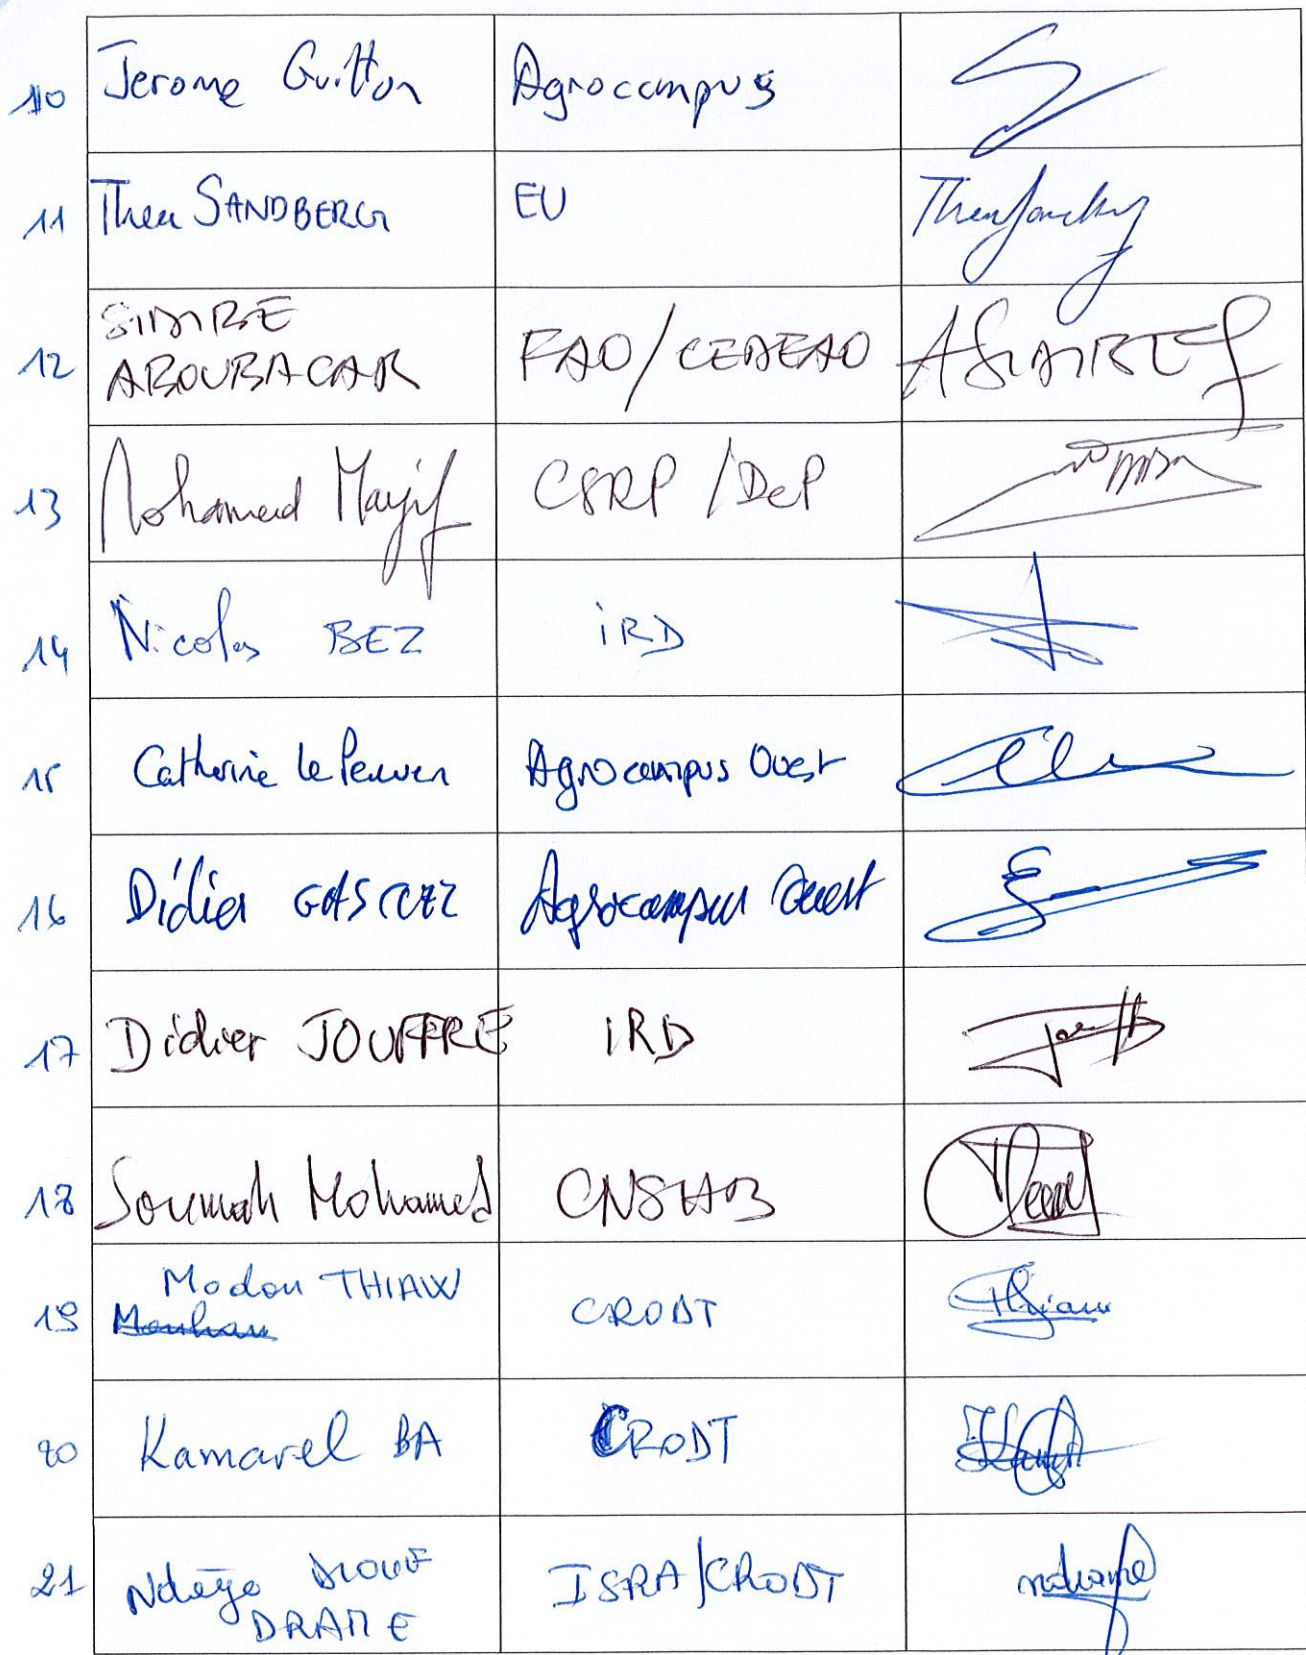 10 Jerome Guitton Agrocampus
11 Thea SANDBERG EU
12 SIDIBE
ABOUBACAR FAO/CEDEAO ASIDIBE
13 Mohamed Mayif CSRP/DEP
14 Nicolas BEZ iRD
15 Catherine Le Penven Agrocampus Ouest
16 Didier GASCUEL Agrocampus Ouest
17 Didier JOUFFRE iRD
18 Soumah Mohamed CNSHB
Modou THIAW
19 CRODT Thiaw
20 Kamarel BA CRODT
21 Ndèye DIOUF
DRAME ISRA/CRODT